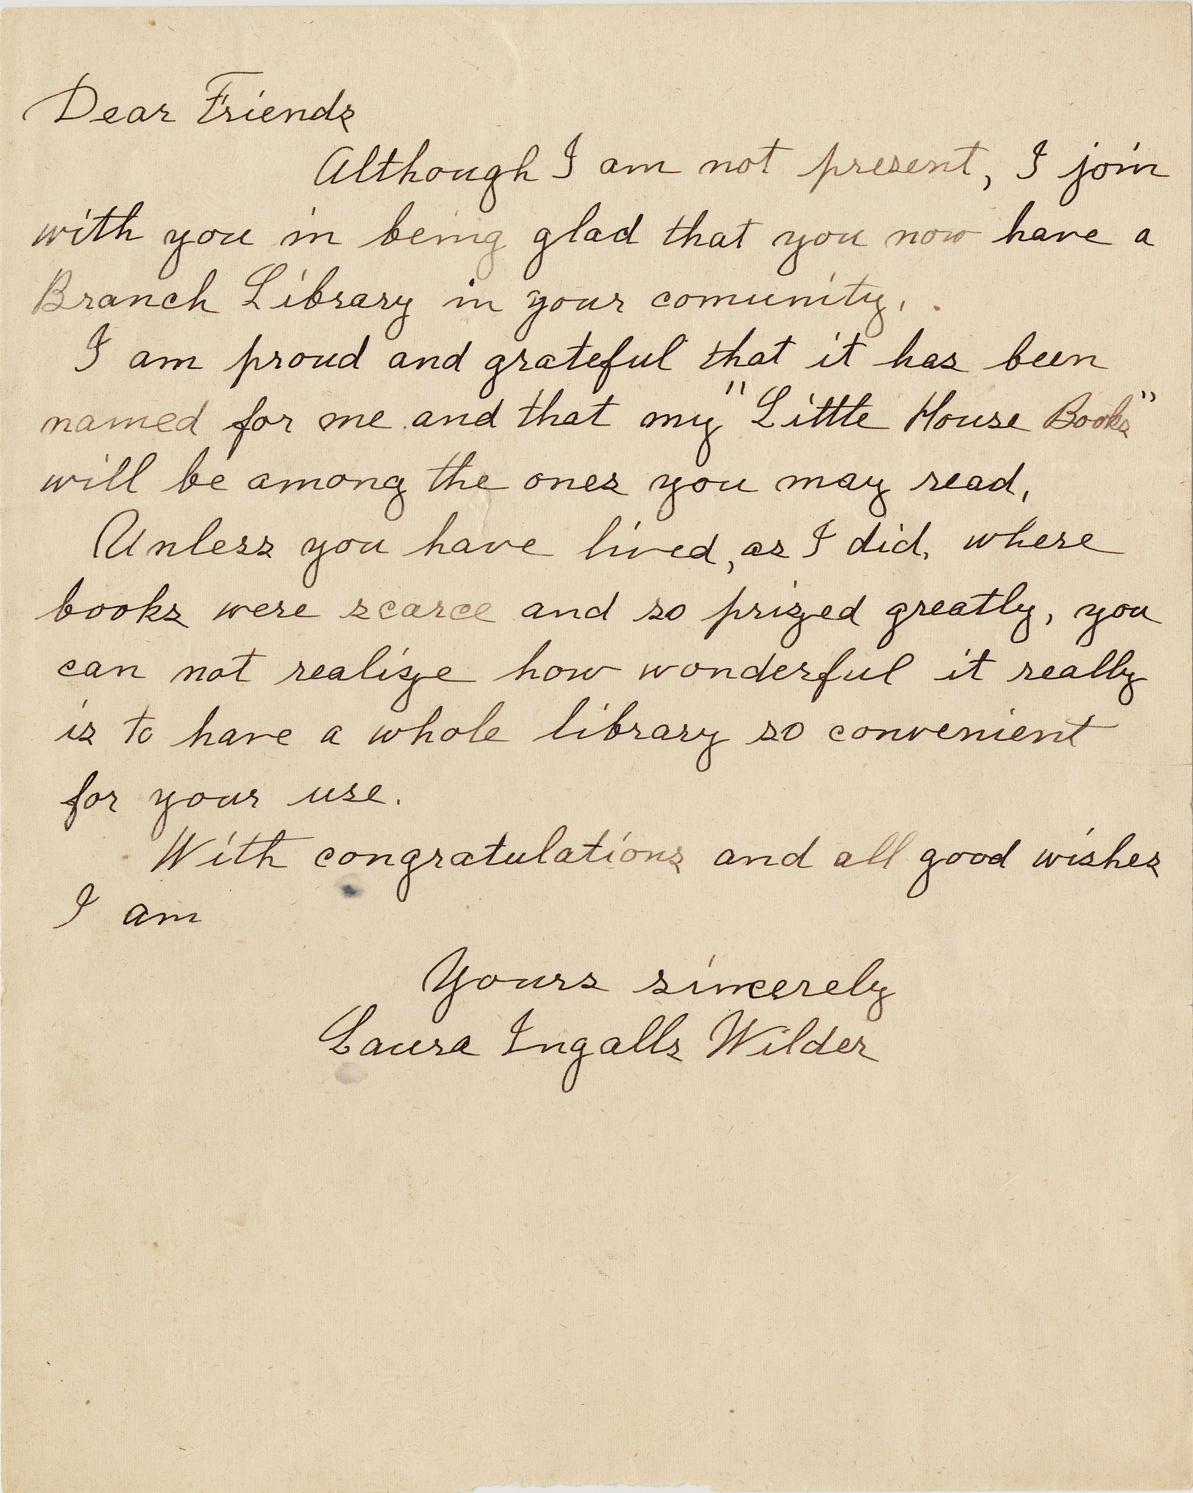 Dear Friends
Although I am not present, I join
with you in being glad that you now have a
Branch Library in your comunity.
I am proud and grateful that it has been
named for me and that my "Little House Books"
will be among the ones you may read.
Unless you have lived, as I did, where
books were scarce and so prized greatly, you
can not realize how wonderful it really
is to have a whole library so convenient
for your use.
With congratulations and all good wishes
I am
Yours sincerely
Laura Ingalls Wilder